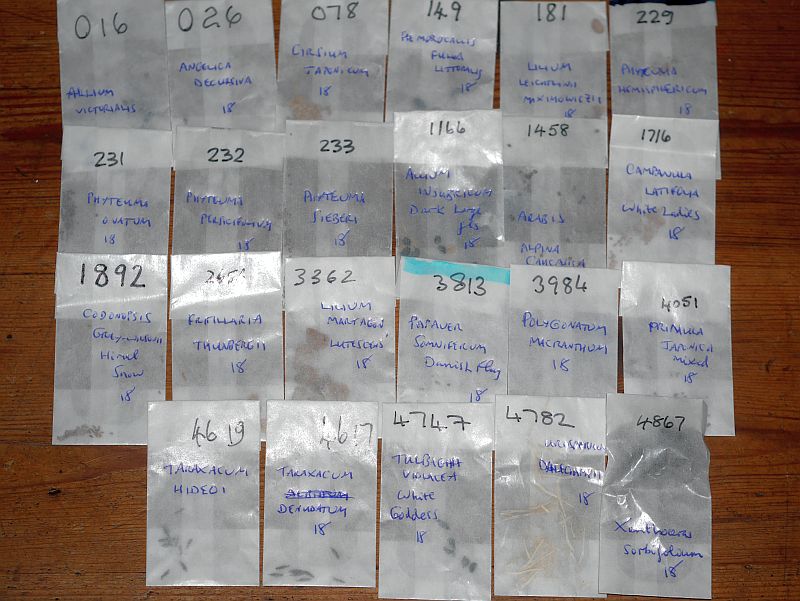 016
ALLIUM
VICTORIALIS
026
ANGELICA
DECURSIVA
18
078
CIRSIUM
JAPONICUM
18
149
HEMEROCALLIS
FULVA
LITTORALIS
18
181
LILIUM
LEICHTLINII
MAXIMOWICZII
18
229
PHYTEUMA
HEMISPHERICUM
18
231
PHYTEUMA
OVATUM
18
232
PHYTEUMA
18
233
PHYTEUMA
SIEBERI
18
1166
ALLIUM
INSUBRICUM
Dark Large
fls
18
1458
ARABIS
ALPINA
CAUCASICA
1716
CAMPANULA
LATIFOLIA
White Ladies
18
1892
CODONOPSIS
Himal
Snow
18
FRITILLARIA
THUNBERGII
18
3362
LILIUM
MARTAGON
LUTESCENS
18
3813
PAPAVER
SOMNIFERUM
Danish Flag
18
3984
POLYGONATUM
MACRANTHUM
18
4051
PRIMULA
JAPONICA
mixed
18
4619
TARAXACUM
HIDEOI
4617
TARAXACUM
DENUDATUM
18
4747
TULBAGHIA
VIOLACEA
White
Goddess
18
4782
18
4867
Xanthoceras
sorbifolium
18